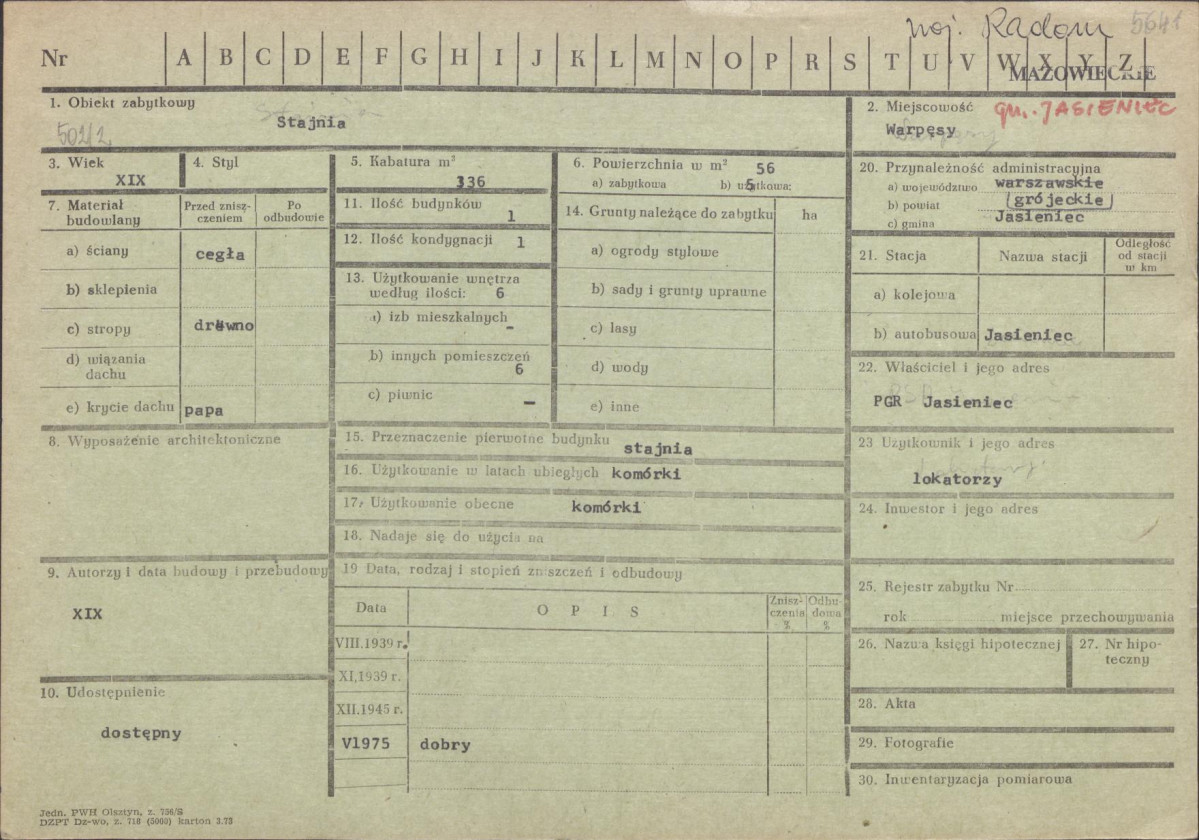 woj. Radom 5641
Nr A B C D E F G H I J K L M N O P R S T U V W X Y Z
MAZOWIECKIE
1. Obiekt zabytkowy
Stajnia
502/2
2. Miejscowość gm. JASIENIEC
Warpęsy
3. Wiek
XIX
4. Styl
5. Kabatura m³
336
6. Powierzchnia w m² 56
a) zabytkowa b) użytkowa:
20. Przynależność administracyjna
a) województwo warszawskie
b) powiat grójeckie
c) gmina Jasieniec
7. Materiał budowlany
Przed znisz-
czeniem
Po
odbudowie
a) ściany cegła
b) sklepienia
c) stropy drewno
d) wiązania
dachu
e) krycie dachu papa
11. Ilość budynków
1
12. Ilość kondygnacji 1
13. Użytkowanie wnętrza
według ilości: 6
a) izb mieszkalnych
-
b) innych pomieszczeń
6
c) piwnic -
14. Grunty należące do zabytku ha
a) ogrody stylowe
b) sady i grunty uprawne
c) lasy
d) wody
e) inne
21. Stacja Nazwa stacji
Odległość
od stacji
w km
a) kolejowa
b) autobusowa Jasieniec
22. Właściciel i jego adres
PGR Jasieniec
8. Wyposażenie architektoniczne
15. Przeznaczenie pierwotne budynku
stajnia
16. Użytkowanie w latach ubiegłych komórki
17. Użytkowanie obecne komórki
18. Nadaje się do użycia na
23 Użytkownik i jego adres
lokatorzy
24. Inwestor i jego adres
9. Autorzy i data budowy i przebudowy
XIX
19 Data, rodzaj i stopień zniszczeń i odbudowy
Data OPIS
Znisz-
czenia
%
Odbu-
dowa
%
VIII.1939 r.
XI.1939 r.
XII.1945 r.
V1975 dobry
10. Udostępnienie
dostępny
25. Rejestr zabytku Nr
rok miejsce przechowywania
26. Nazwa księgi hipotecznej
27. Nr hipo-
teczny
28. Akta
29. Fotografie
30. Inwentaryzacja pomiarowa
Jedn. PWH Olsztyn, z. 736/S
DZPT Dz-wo, z. 718 (5000) karton 3.73